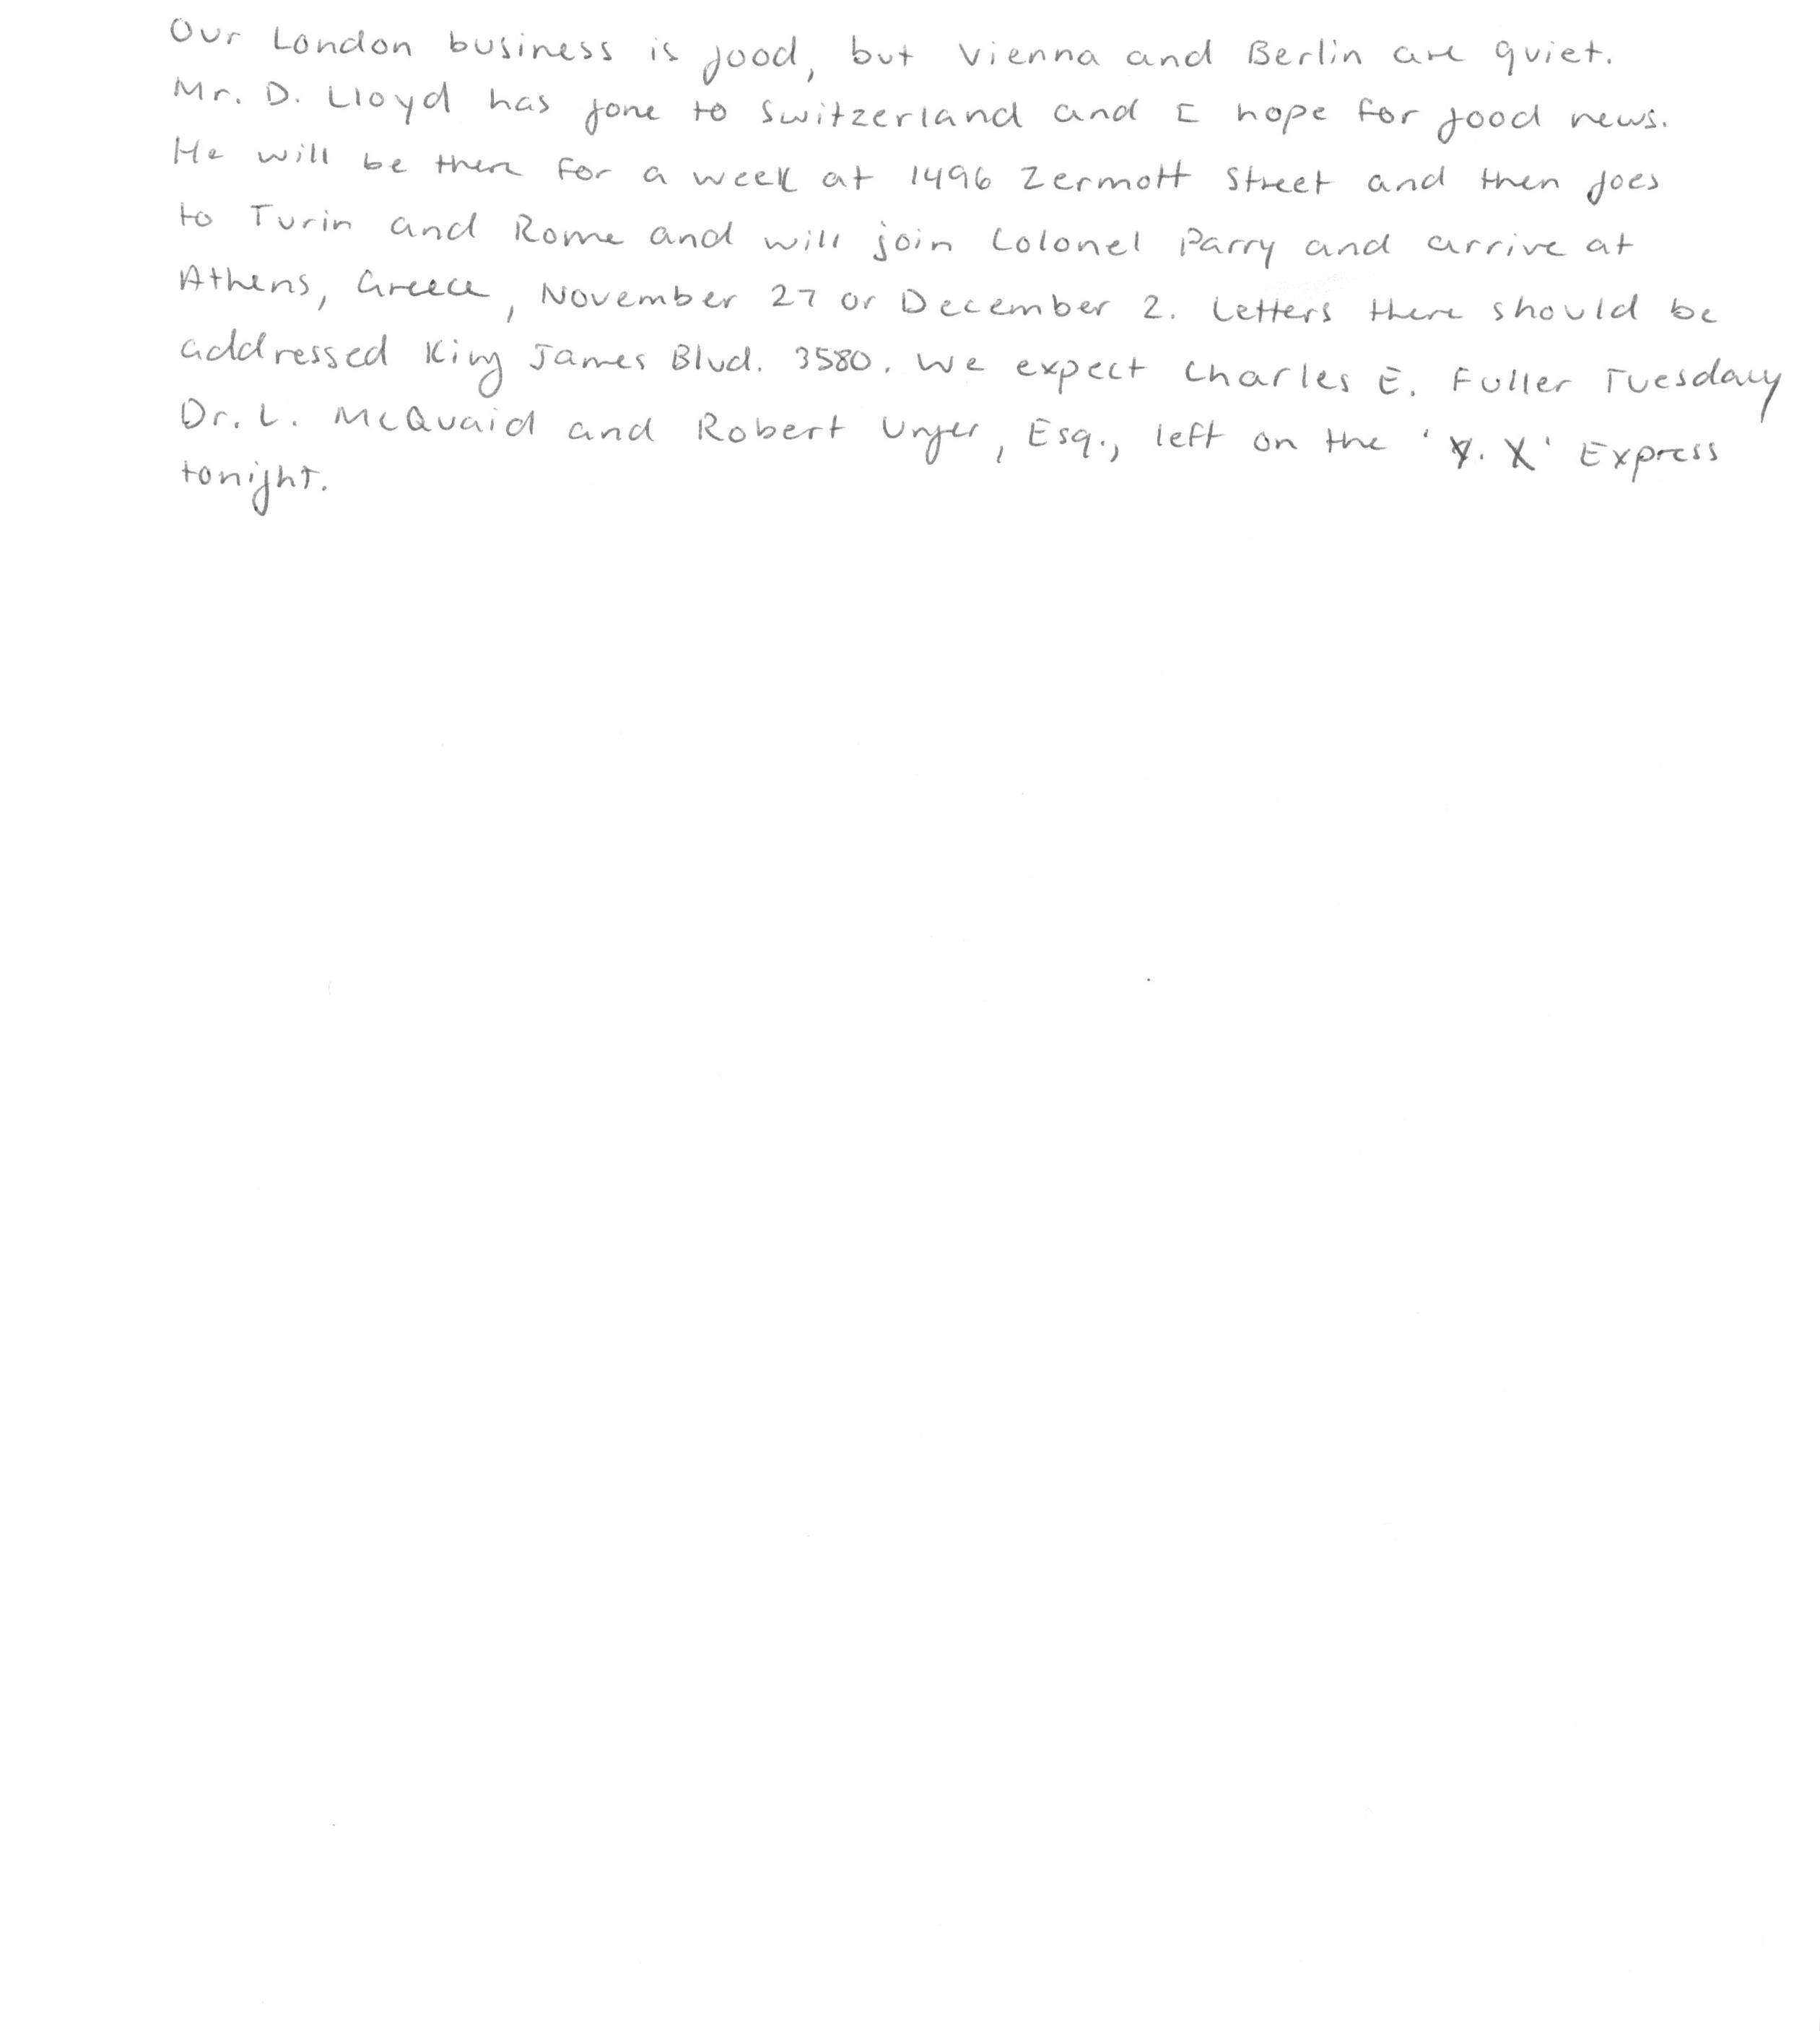 Our London business is good, but Vienna and Berlin are quiet.
Mr. D. Lloyd has gone to Switzerland and I hope for good news.
He will be there for a week at 1496 Zermott Street and then goes
to Turin and Rome and will join Colonel Parry and arrive at
Athens, Greece, November 27 or December 2. Letters there should be
addressed King James Blvd. 3580. We expect Charles E. Fuller Tuesday
Dr. L. McQuaid and Robert Unger, Esq., left on the 'Y. X' Express
tonight.